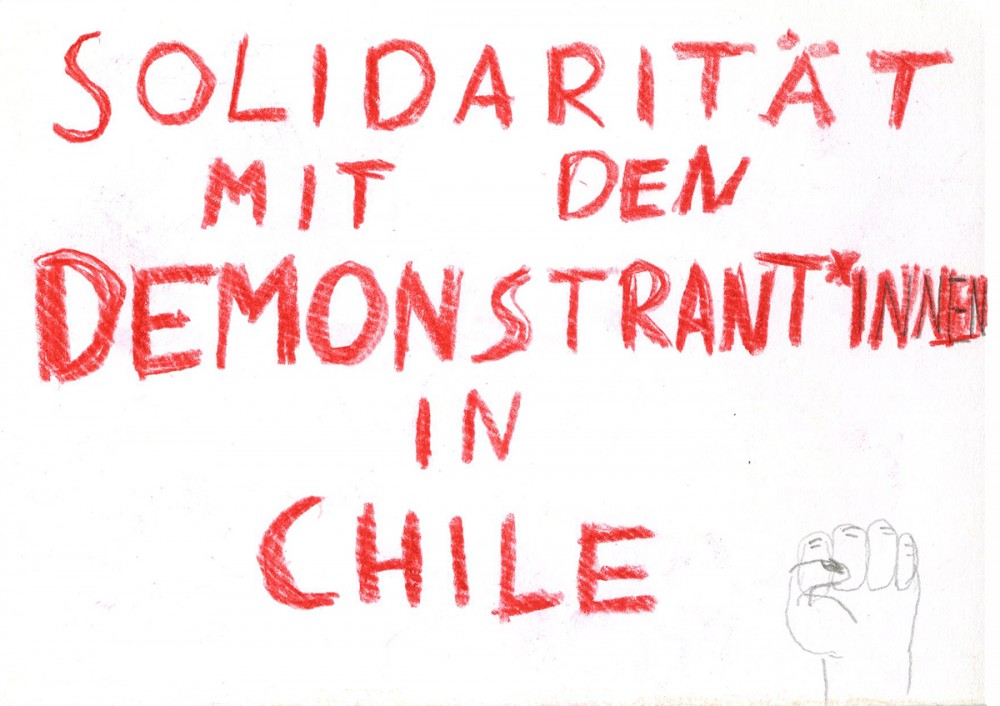 SOLIDARITÄT
MIT DEN
DEMONSTRANT*INNEN
IN
CHILE